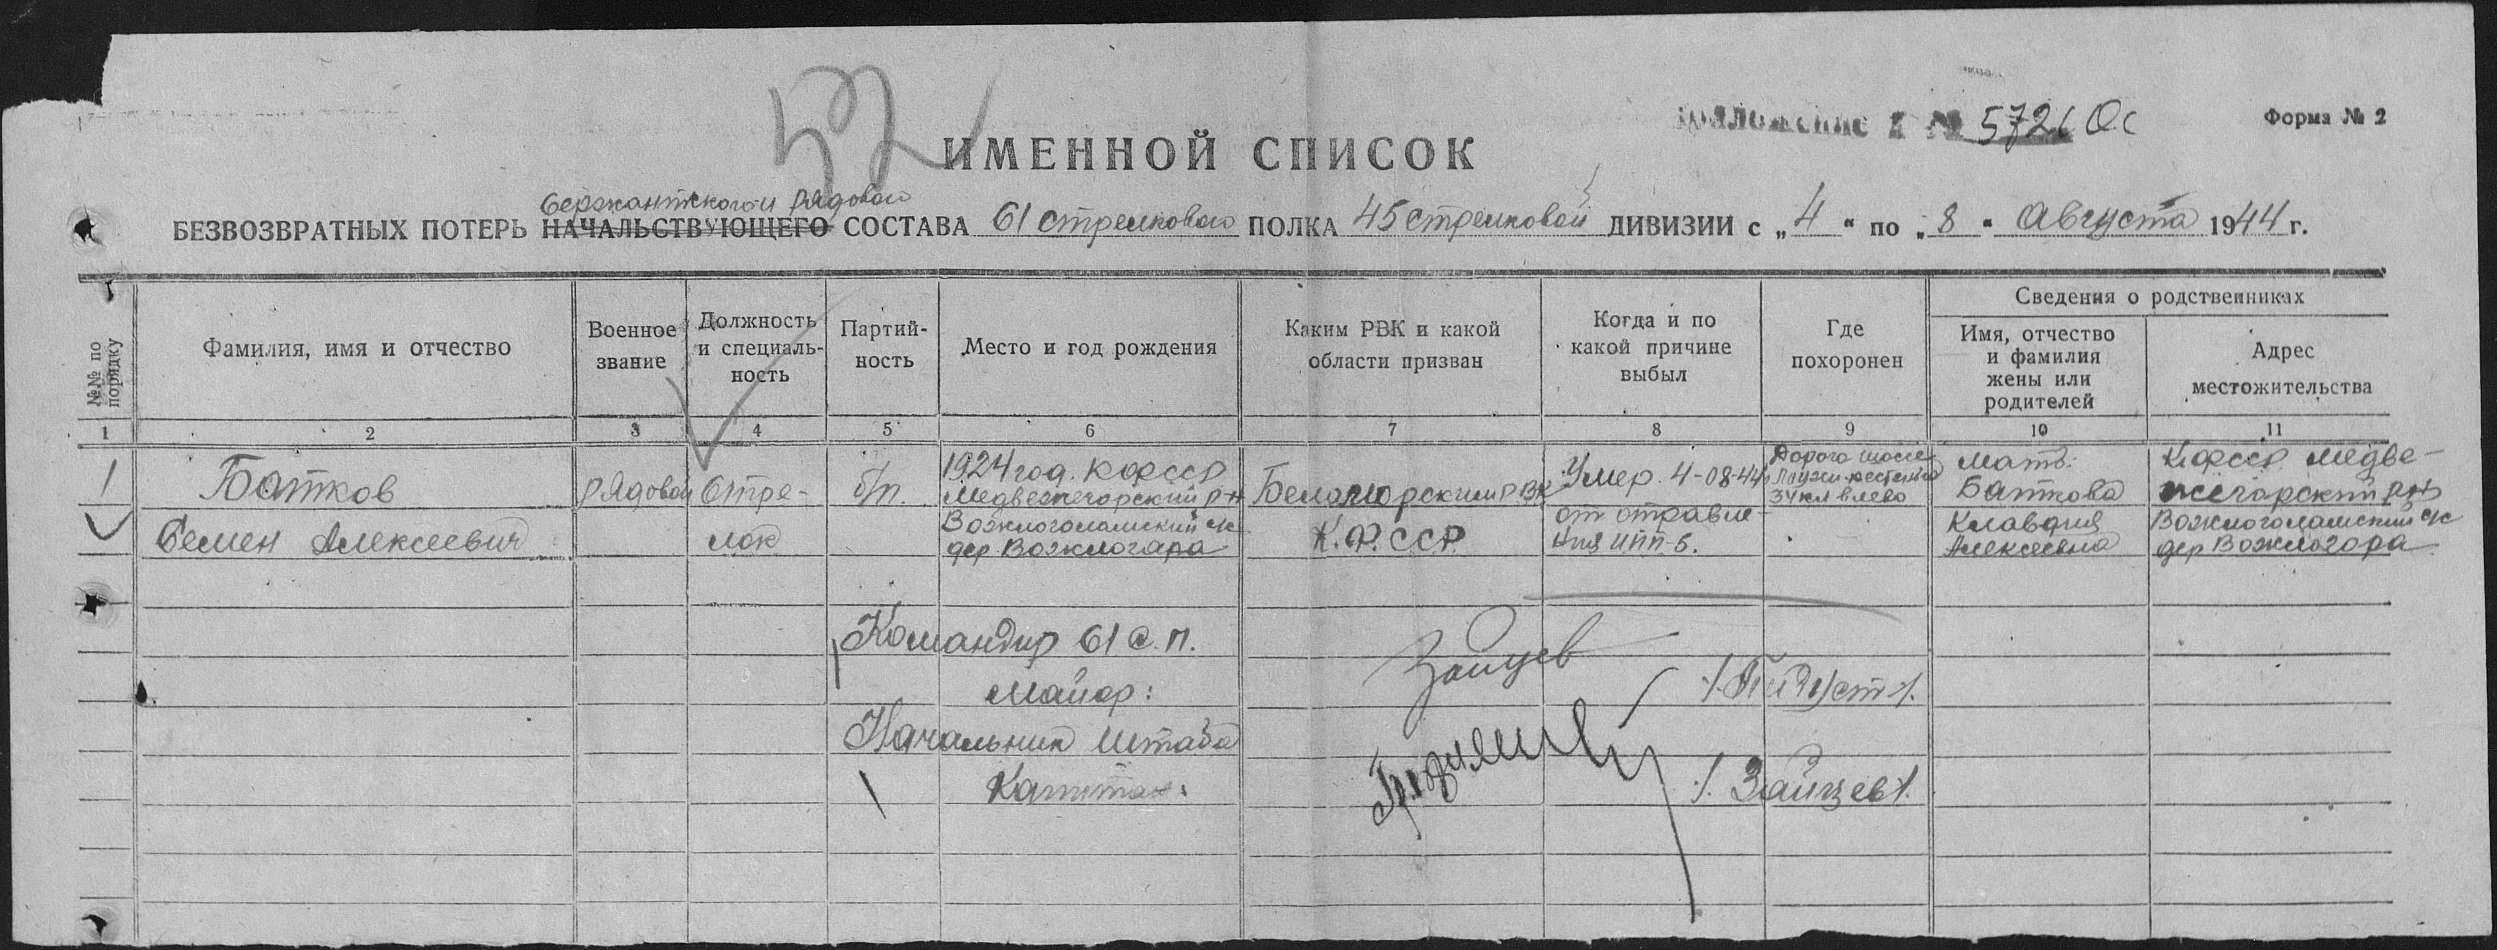 52
Приложение к № 5726 Ос
Форма № 2
ИМЕННОЙ СПИСОК
Сержантского и рядового
БЕЗВОЗВРАТНЫХ ПОТЕРЬ НАЧАЛЬСТВУЮЩЕГО СОСТАВА 61 стрелкового ПОЛКА 45 стрелковой ДИВИЗИИ с „4“ по „8“ Августа 1944 г.
№№ по порядку
Фамилия, имя и отчество
Военное
звание
Должность
и специаль-
ность
Партий-
ность
Место и год рождения
Каким РВК и какой
области призван
Когда и по
какой причине
выбыл
Где
похоронен
Сведения о родственниках
Имя, отчество
и фамилия
жены или
родителей
Адрес
местожительства
1 2 3 4 5 6 7 8 9 10 11
1
Батков
Семен Алексеевич
рядовой
Стре-
лок
б/п.
1924 год. КФССР
Медвежегорский р-н
Вожмоголамский с/с
дер. Вожмогара
Беломорским РВК
К.Ф.ССР.
Умер 4-08-44
от отравле-
ния ИПП-5.
Дорога шоссе
Лоухи-Кестеньга
34 км влево
Мать:
Баткова
Клавдия
Алексеевна
КФССР Медве-
жегорский р-н
Вожмоголамский с/с
дер Вожмогора
Командир 61 с.п.
Майор:
Зайцев
Начальник Штаба
Капитан:
/. Зайцев /.